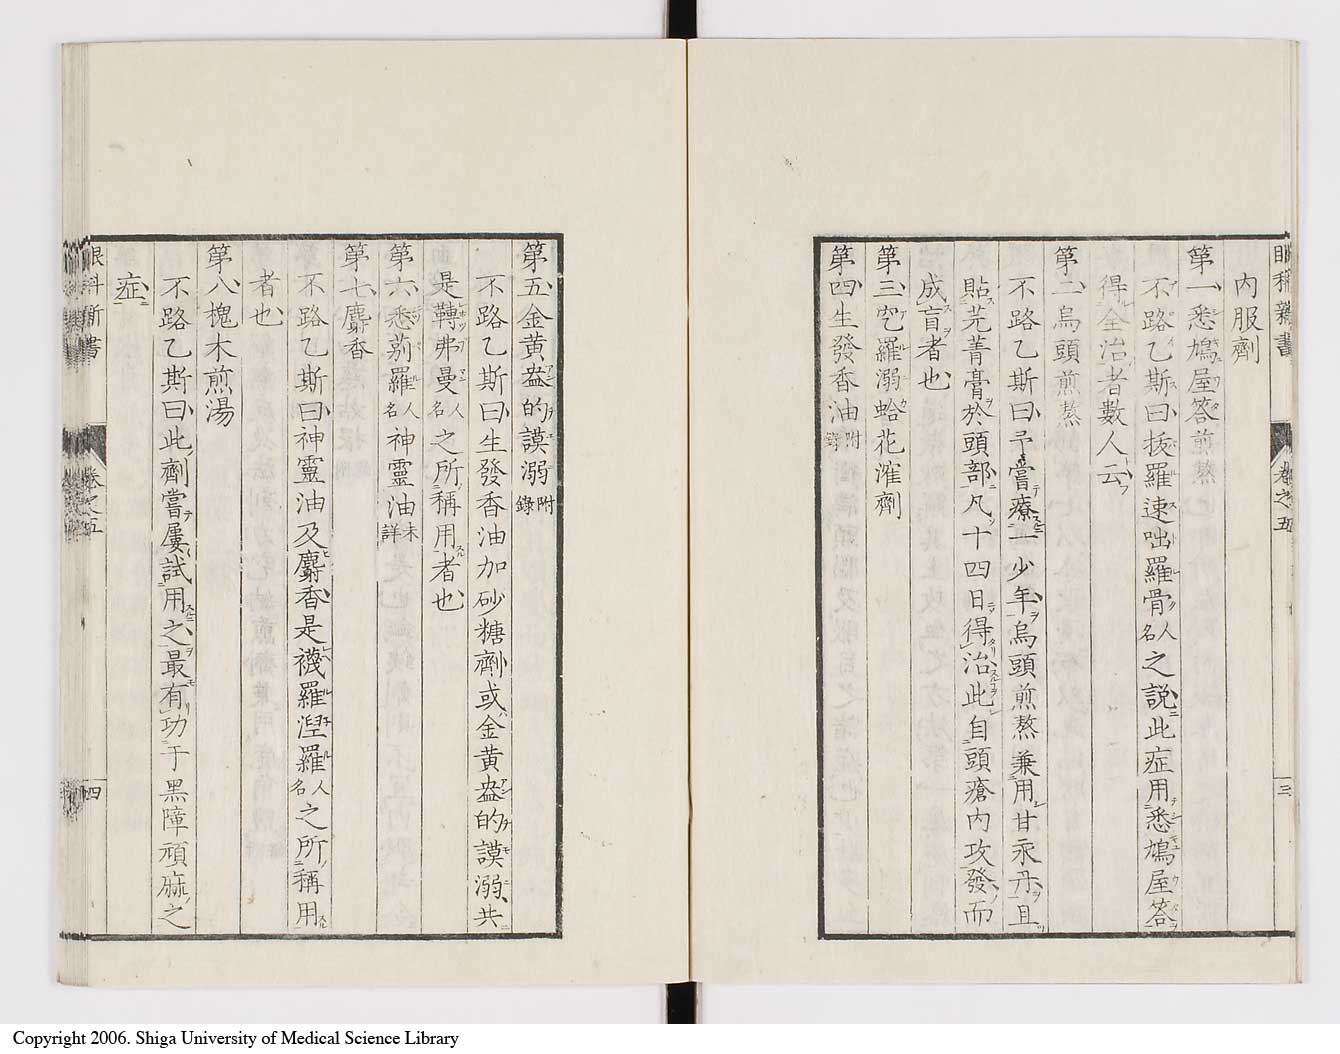 眼科新書
卷之五
三
内服劑
第一悉鳩屋荅煎熬
不路乙斯曰拔羅速咄羅骨人名之説此症用悉鳩屋荅
得全治者數人云
第二烏頭煎熬
不路乙斯曰予嘗療一少年烏頭煎熬兼用甘汞丹且
貼芫菁膏於頭部凡十四日得治此自頭瘡内攻發而
成盲者也
第三穵羅溺蛤花漼劑
第四生發香油附錄
第五金黄盎的謨溺附錄
不路乙斯曰生發香油加砂糖劑或金黄盎的謨溺共
是轉弗曼人名之所稱用者也
第六悉莂羅人名神靈油未詳
第七麝香
不路乙斯曰神靈油及麝香是襪羅涅羅人名之所稱用
者也
第八槐木煎湯
不路乙斯曰此劑嘗屢試用之最有功于黒障頑麻之
症
眼科新書
卷之五
四
Copyright 2006. Shiga University of Medical Science Library